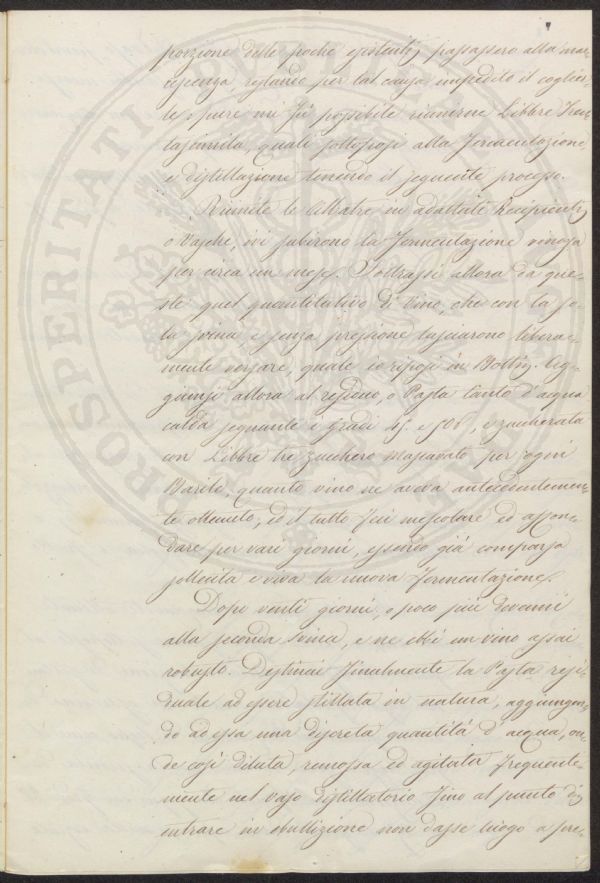 porzione delle poche esistenti, passassero alla mar-
cescenza, restando per tal causa impedito il coglier-
le; pure mi fù possibile riunirne Libbre Tren
taseimila, quali sottoposi alla Fermentazione,
e distillazione tenendo il seguente processo.
Riunite le in adattati Recipienti,
o Vasche, ivi subirono la Fermentazione vinosa
per circa un mese. Sottrassi allora da que-
ste quel quantitativo di Vino, che con la so-
la svina, e senza pressione lasciarono libera-
mente versare, quale io riposi in Botti. Ag-
giunsi allora al residuo, o Pasta tanto d'acqua
calda segnante i gradi 45. e 50., e zuccherata
con Libbre tre zucchero mascavato per ogni
Barile, quanto vino ne aveva antecedentemen-
te ottenuto, ed il tutto feci mescolare ed affon-
dare per vari giorni, essendo già comparsa
sollecita e viva la nuova Fermentazione.
Dopo venti giorni, o poco più devenni
alla seconda svina, e ne ebbi un vino assai
robusto. Destinai finalmente la Pasta resi-
duale ad essere stillata in natura, aggiungen-
do ad essa una discreta quantità d'acqua, on-
de così diluta, remossa ed agitata frequente-
mente nel vaso distillatorio fino al punto di
entrare in ebullizione non dasse luogo a pre-
PROSPERITATI